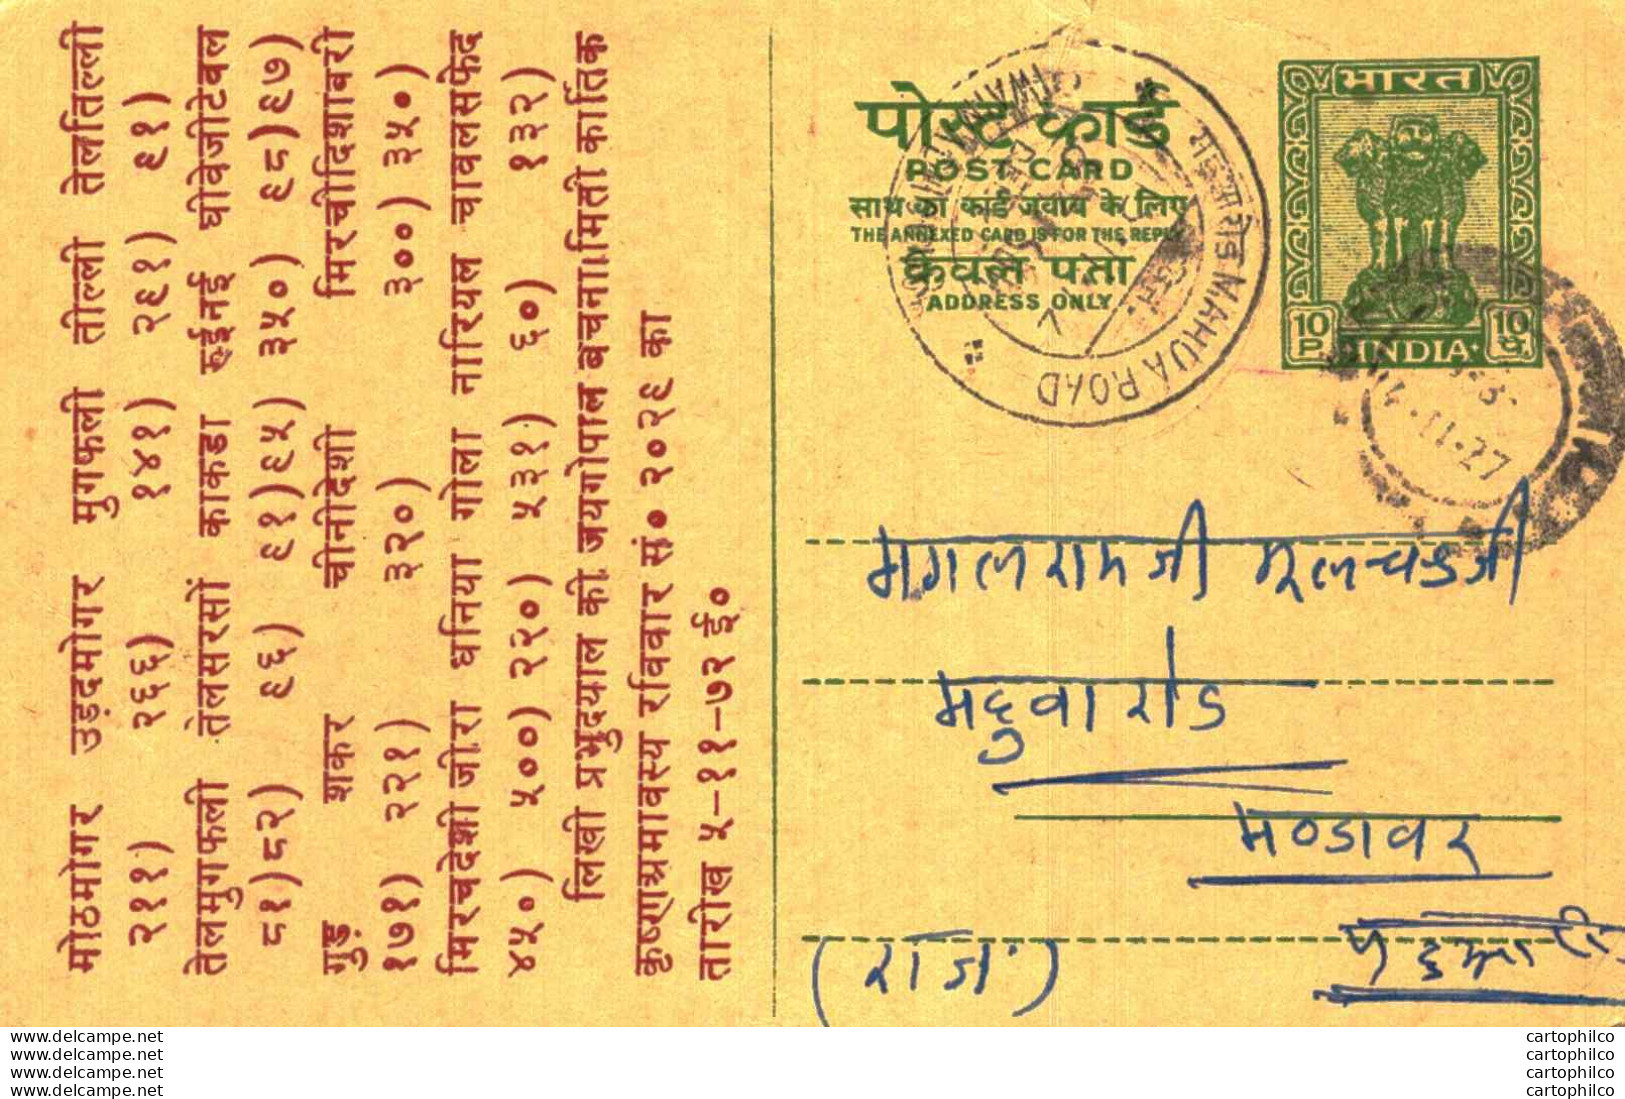 मोठमोगर उड़दमोगर मुगफली तीली तेलतिल्ली
२११) २६६) १४१) २६१) ६१)
तेलमुगफली तेलसरसों काकडा रुईनई घीवेजीटेवल
८१)८२) ६६) ६१)६५) ३५०) ६८)६७)
गुड़ शकर चीनीदेशी मिरचीदिशावरी
१७१) २२१) ३२०) ३००) ३५०)
मिरचदेशी जीरा धनिया गोला नारियल चावलसफेद
४५०) ५००) २२०) ५३१) ६०) १३२)
लिखी प्रभुदयाल की जयगोपाल बचनामिती कार्तिक
रविवार सं० २०२६ का
तारीख ५-११-७२ ई०
पोस्ट कार्ड
POST CARD
साथ का कार्ड जवाब के लिए
THE ANNEXED CARD IS FOR THE REPLY
केवल पता
ADDRESS ONLY
MAHUA ROAD
भारत
10 P. INDIA 10 P.
मंगलरामजी मूलचन्डजी
महुवा रोड
मण्डावर
(राज.)
cartophilco
delcampe.net cartophilco
delcampe.net cartophilco
delcampe.net cartophilco
delcampe.net